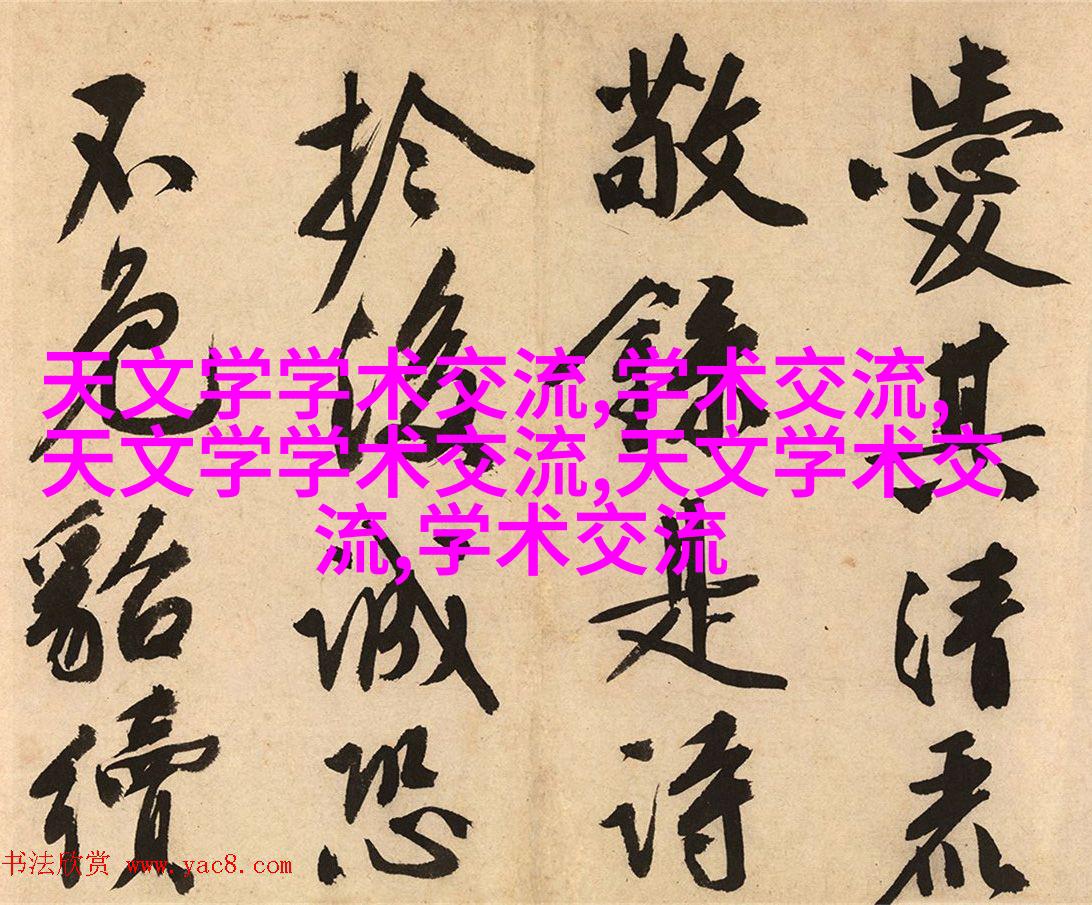 愛其清麗
敬錄是詩
於後誠恐
不免貂續
天文学学术交流,学术交流,
天文学学术交流,天文学术交
流,学术交流
书法欣赏 www.yac8.com